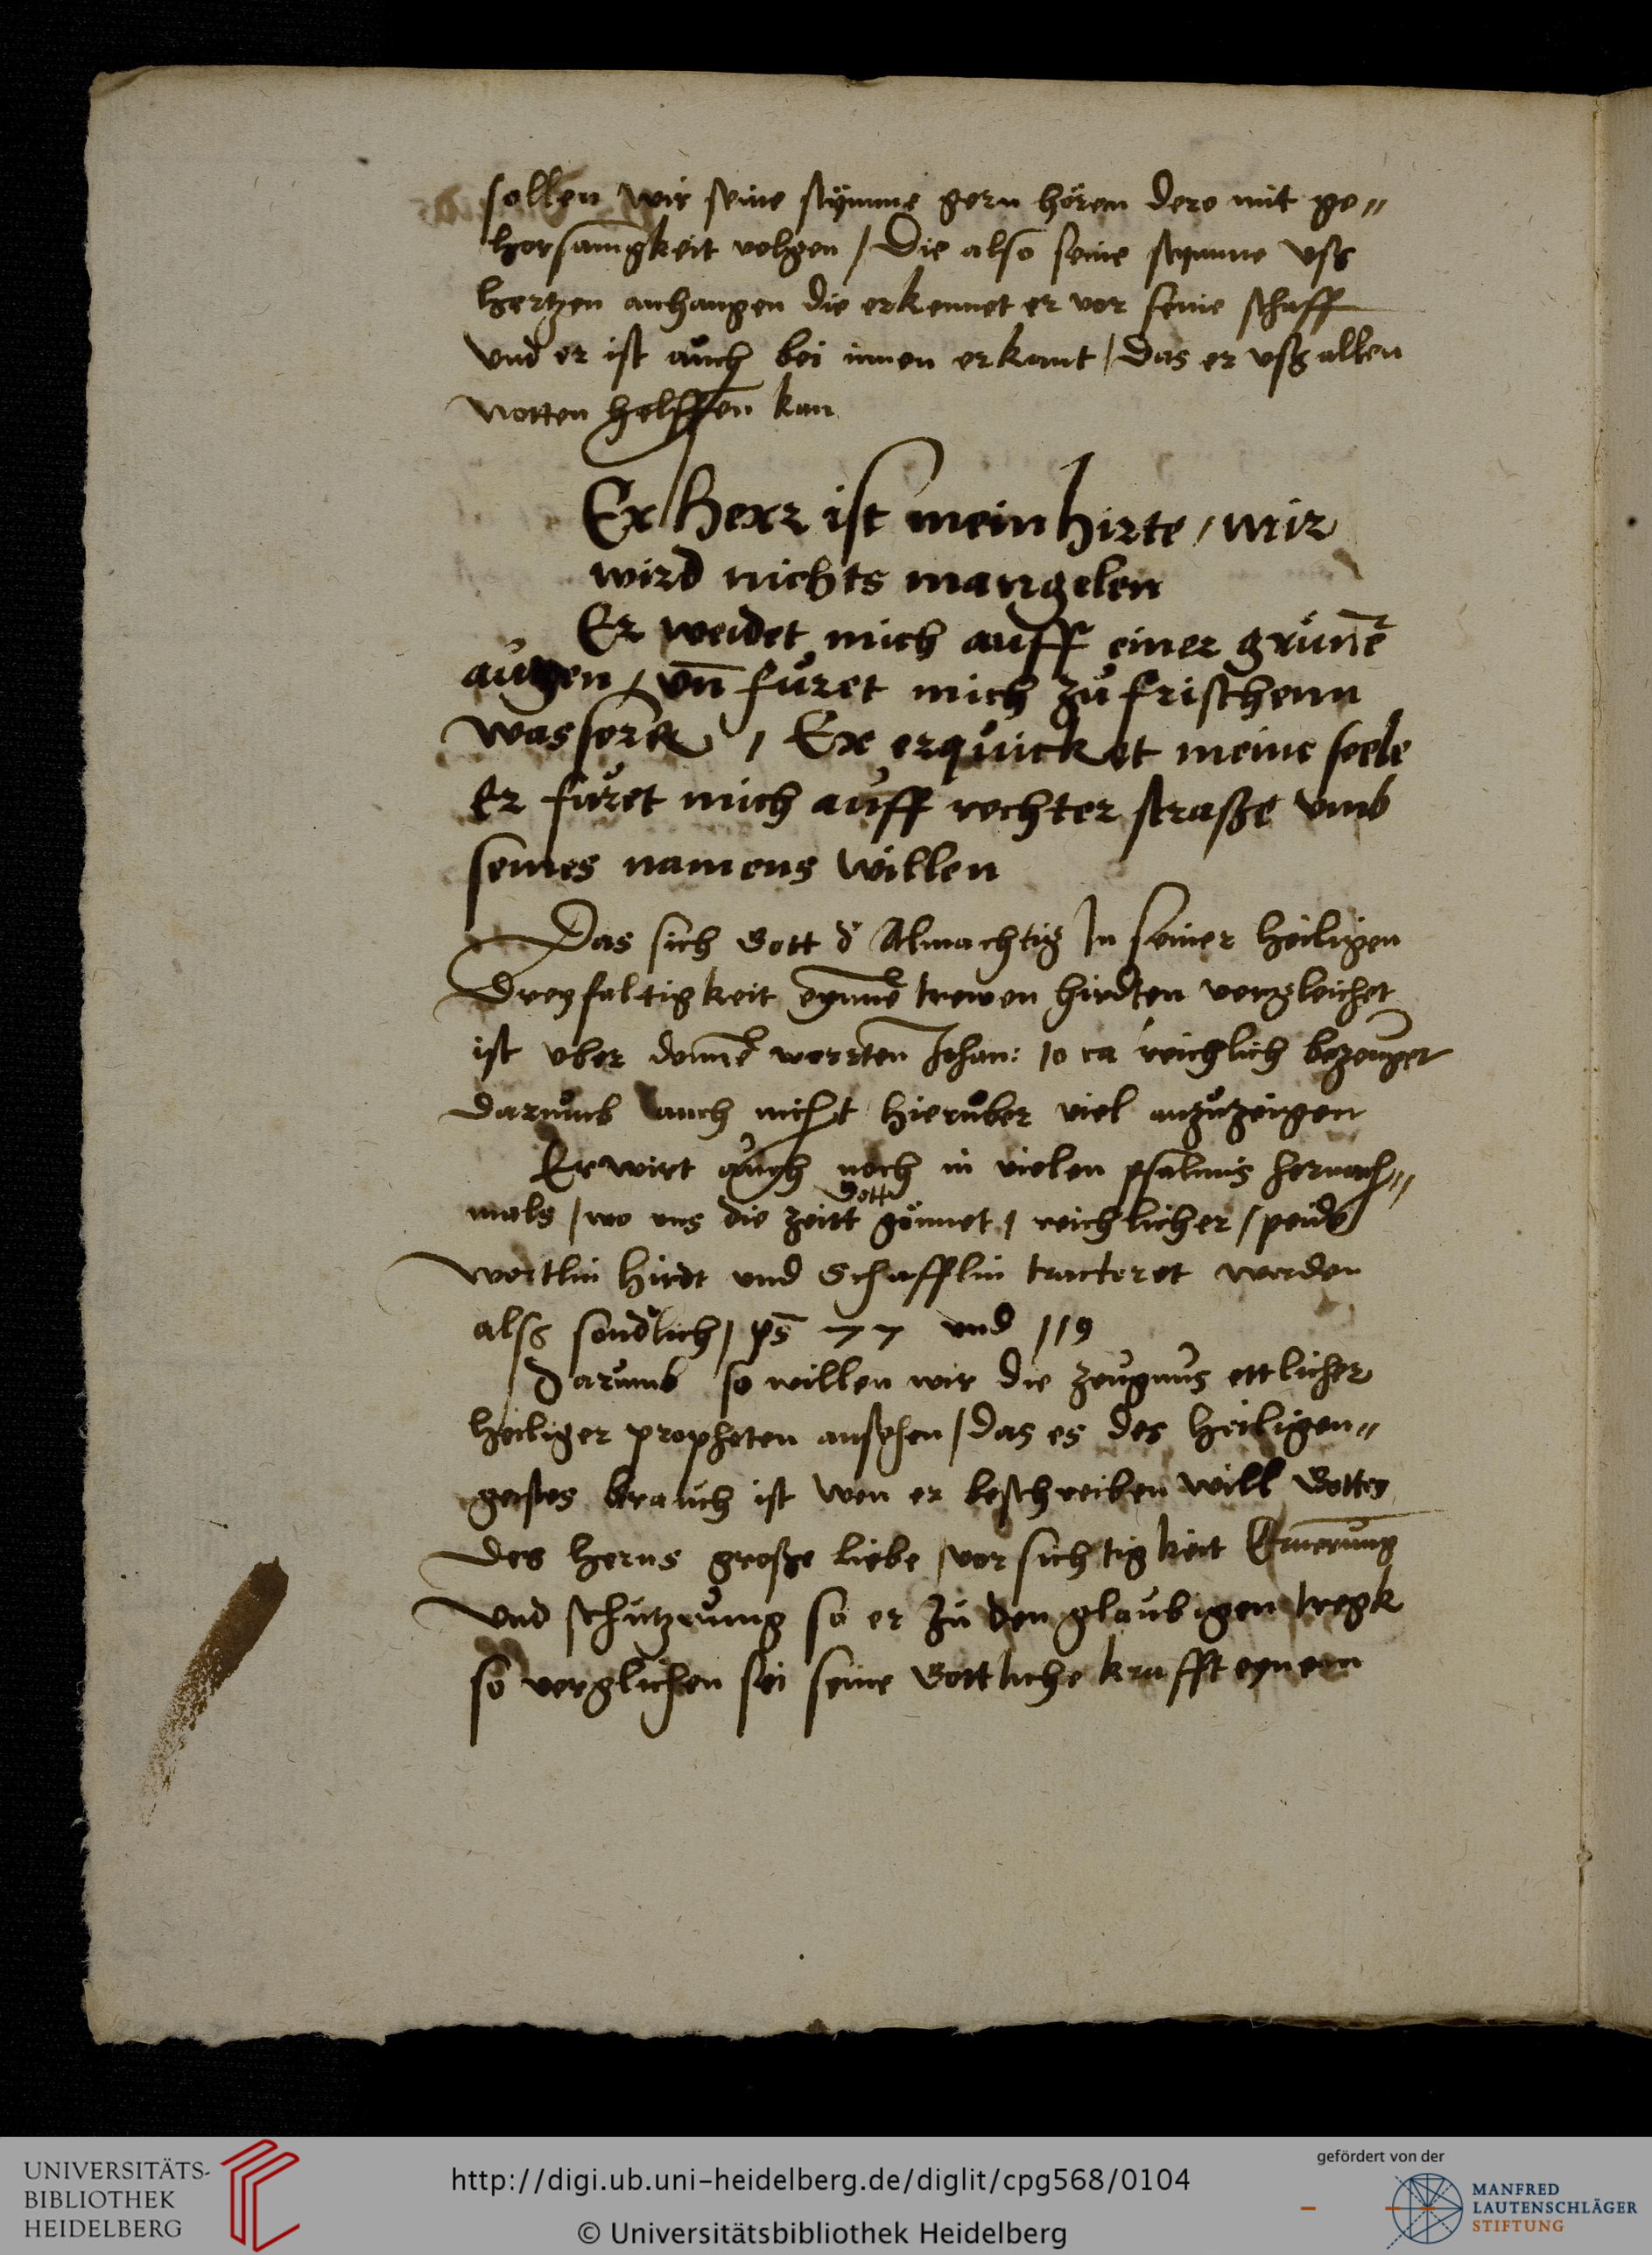 sollen wir seine stÿmme gern hören dero mit ge„
horsamgkeit volgen / Die also seine stymme vß
hertzen anhangen die erkennet er vor seine schaff
vnd er ist auch bei innen erkant / das er vß allen
notten helffen kan
Er Herr ist mein hirte / mir
wird nichts mangelen
Er weidet mich auff einer grünē
augen / vn̄ füret mich zu frischenn
wassern / Er erquicket meine seele
Er füret mich auff rechter straße vmb
seines namens willen
Das sich Gott d Almachtig In seiner heiligen
Dreyfaltigkeit eynnē trewen hirdten vergleichet
ist vber worten Johan: 10 ca reichlich bezeuget
darumb auch nicht hieruber viel anzuzeigen
Er wirt auch noch in vielen psalmis hernach„
Gott
mals / wo vns die zeitt gönnet / reichlicher /
wortlin hirdt vnd Schafflin tracteret werden
alß sondlich / ps 77 vnd 119
Darumb so willen wir die zeugnus ettlicher
heiliger propheten ansehen / das es des heiligen„
geistes brauch ist wen er beschreiben will Gottes
des herns große liebe / vorsichtigkeit
vnd schutzung so er zu den glaubigen tregt
so verglichen sei seine Gottliche krafft eynem
UNIVERSITÄTS-
BIBLIOTHEK
HEIDELBERG
http://digi.ub.uni-heidelberg.de/diglit/cpg568/0104
© Universitätsbibliothek Heidelberg
gefördert von der
MANFRED
LAUTENSCHLÄGER
STIFTUNG